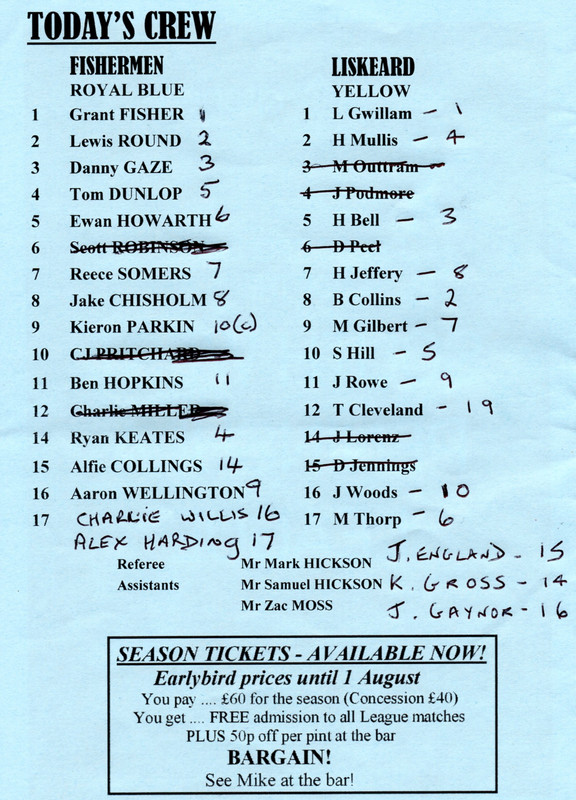 TODAY'S CREW
FISHERMEN LISKEARD
ROYAL BLUE YELLOW
1 Grant FISHER 1 1 L Gwillam - 1
2 Lewis ROUND 2 2 H Mullis - 4
3 Danny GAZE 3 3 M Outtram
4 Tom DUNLOP 5 4 J Podmore
5 Ewan HOWARTH 6 5 H Bell - 3
6 Scott ROBINSON 6 D Peel
7 Reece SOMERS 7 7 H Jeffery - 8
8 Jake CHISHOLM 8 8 B Collins - 2
9 Kieron PARKIN 10(c) 9 M Gilbert - 7
10 CJ PRITCHARD 10 S Hill - 5
11 Ben HOPKINS 11 11 J Rowe - 9
12 Charlie MILLER 12 T Cleveland - 19
14 Ryan KEATES 4 14 J Lorenz
15 Alfie COLLINGS 14 15 D Jennings
16 Aaron WELLINGTON 9 16 J Woods - 10
17 CHARLIE WILLIS 16 17 M Thorp - 6
ALEX HARDING 17
Referee Mr Mark HICKSON J. ENGLAND - 15
Assistants Mr Samuel HICKSON K. GROSS - 14
Mr Zac MOSS J. GAYNOR - 16
SEASON TICKETS - AVAILABLE NOW!
Earlybird prices until 1 August
You pay .... £60 for the season (Concession £40)
You get .... FREE admission to all League matches
PLUS 50p off per pint at the bar
BARGAIN!
See Mike at the bar!